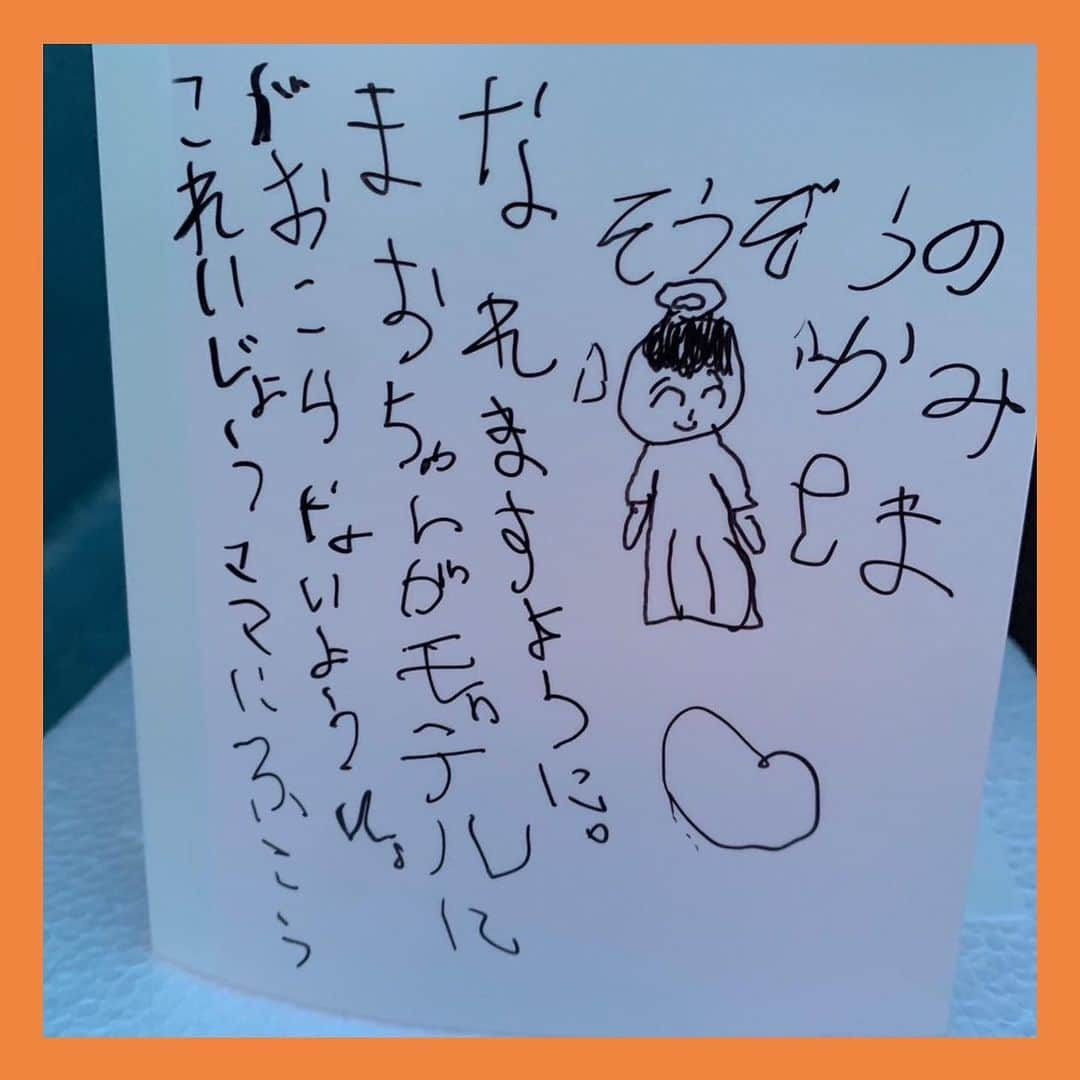 そうぞうの
かみ
さま
これいじょうママにふこう
がおこらないように。
まおちゃんがモデルに
なれますように。